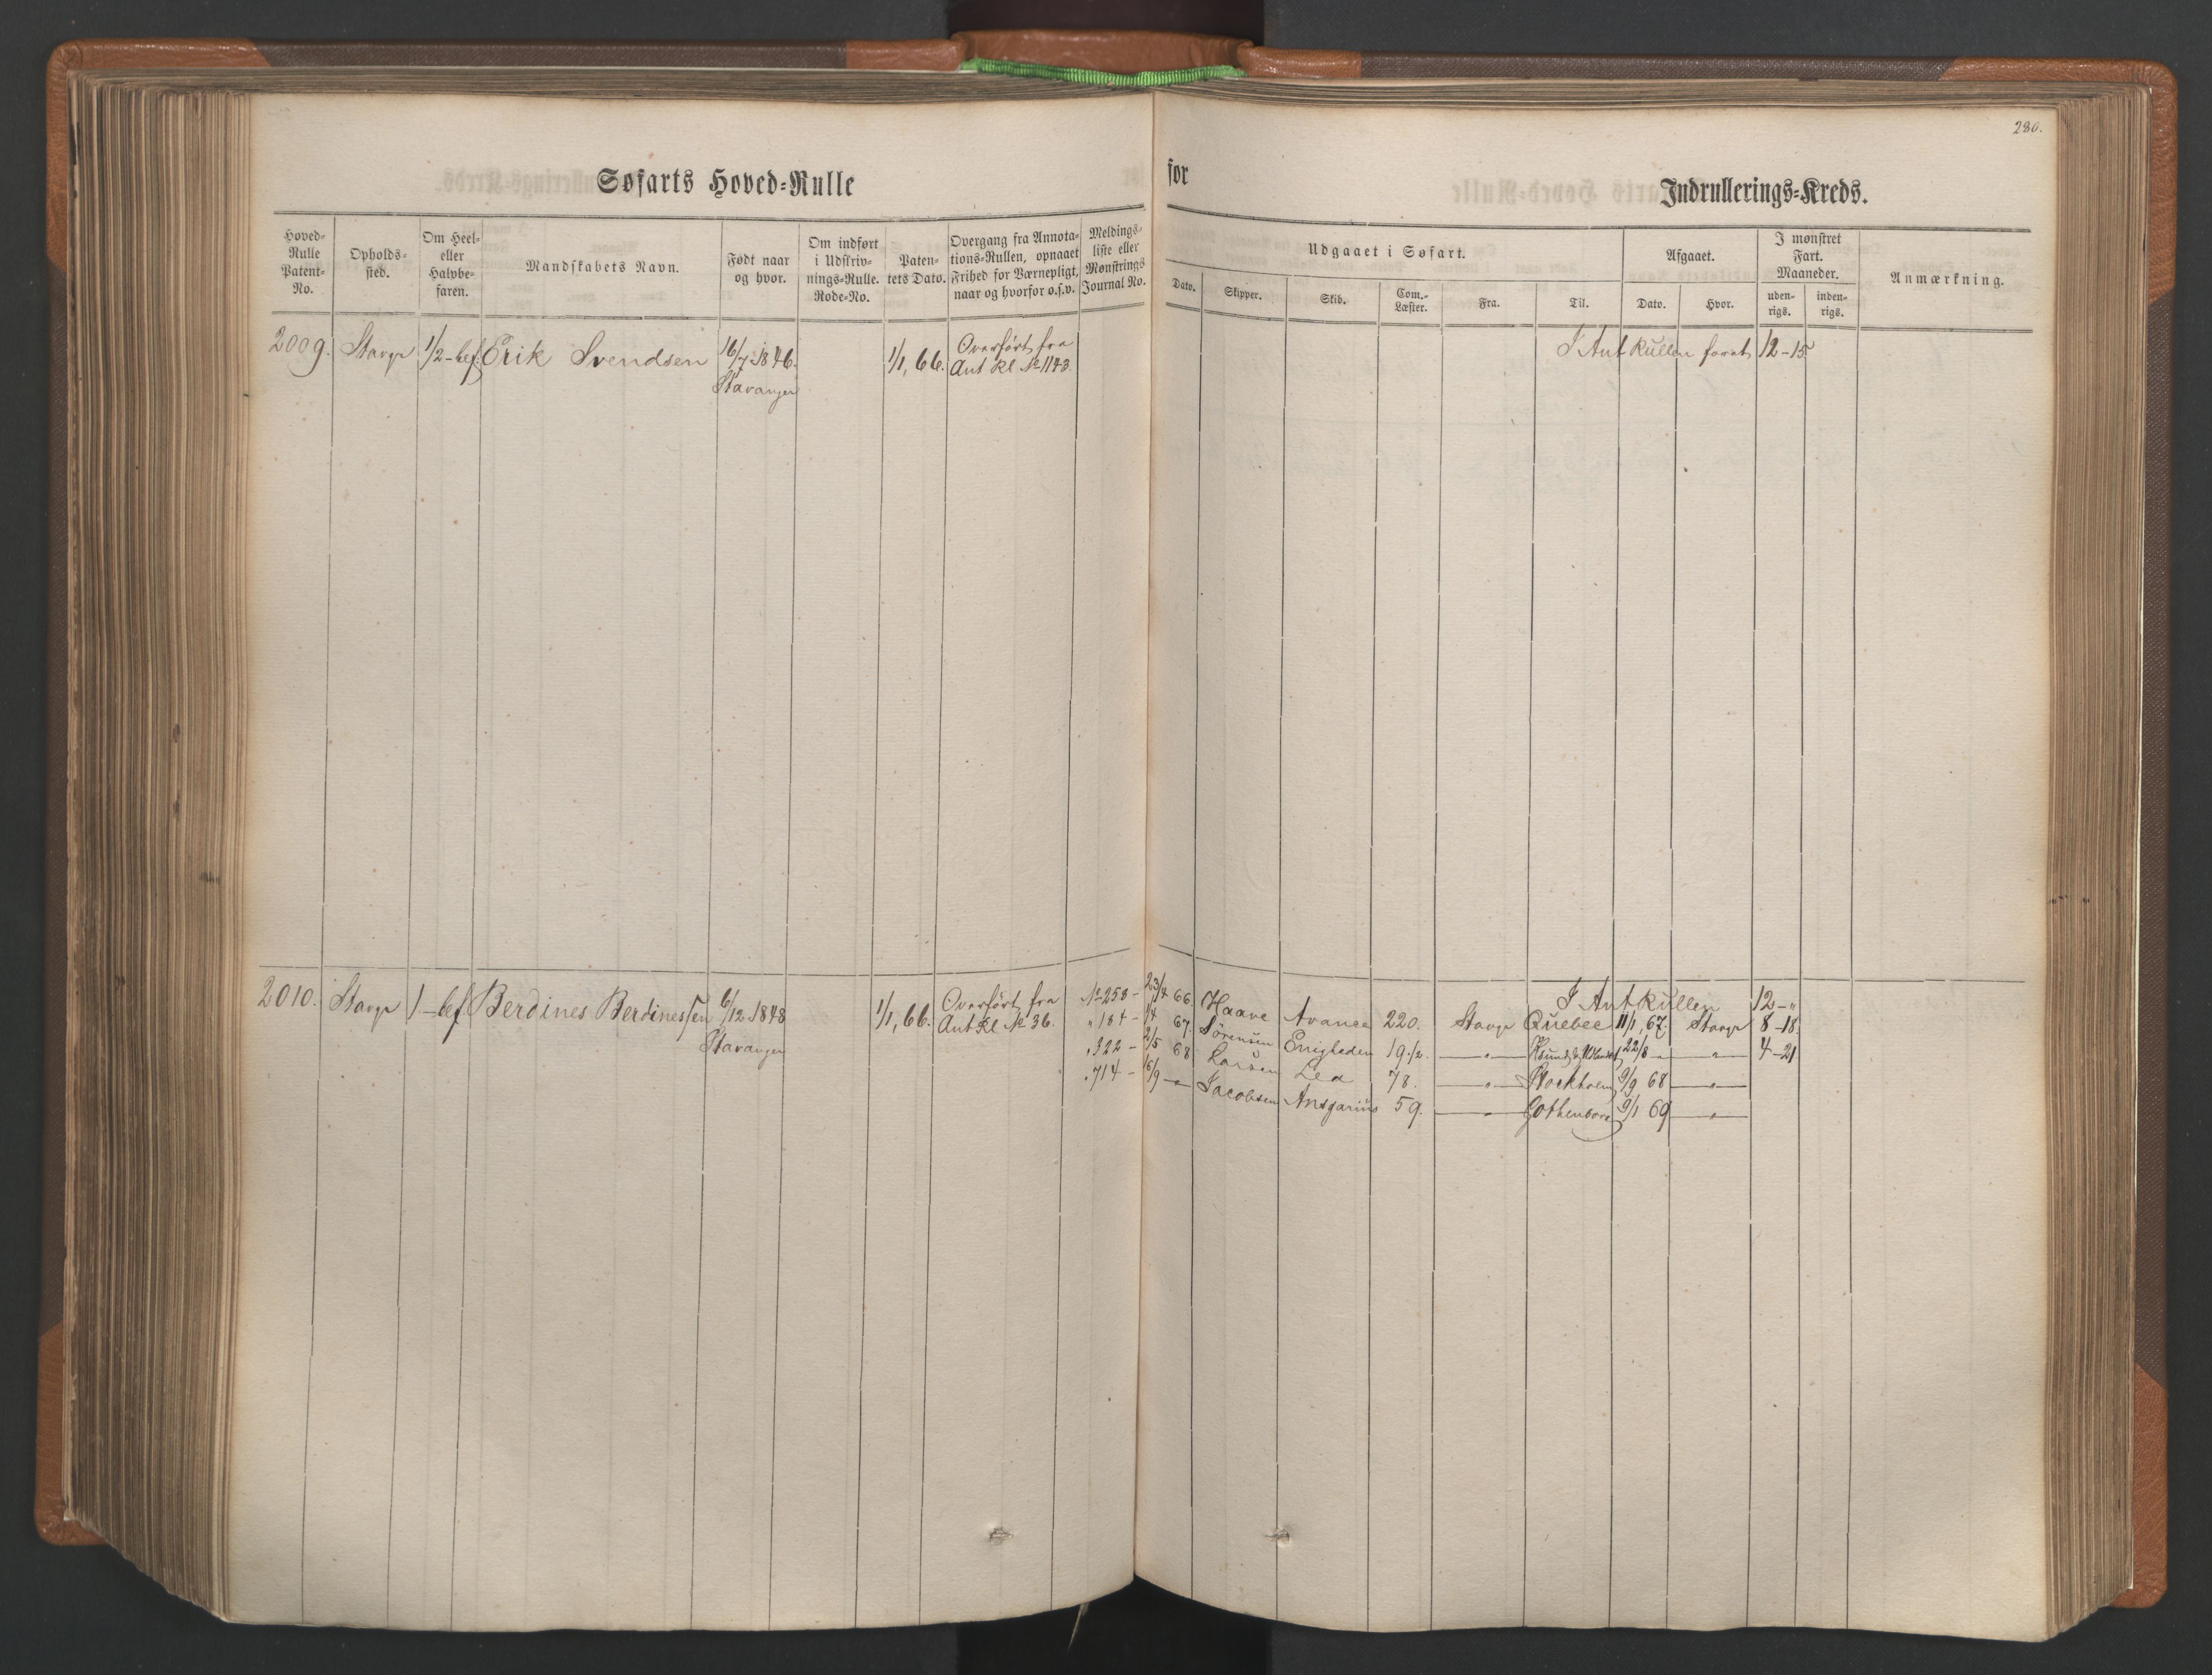 280.
Søfarts Hoved-Rulle
for
Indrullerings-Kreds.
Hoved-Rulle Patent-No.
Opholds-sted.
Om Heel- eller Halvbe-faren.
Mandskabets Navn.
Født naar og hvor.
Om indført i Udskriv-nings-Rulle. Rode-No.
Paten-tets Dato.
Overgang fra Annota-tions-Rullen, opnaaet Frihed for Værnepligt, naar og hvorfor o.s.v.
Meldings-liste eller Mønstrings Journal No.
Udgaaet i Søfart.
Dato.
Skipper.
Skib.
Com.-Læster.
Fra.
Til.
Afgaaet.
Dato.
Hvor.
I mønstret Fart. Maaneder.
uden-rigs.
inden-rigs.
Anmærkning.
2009. Stavgr 1/2-bef. Erik Svendsen 16/7 1846. 1/1, 66. Overført fra
Stavanger Ant Rl No 1143.
I Ant Rullen faret 12-15
2010. Stavgr 1-bef Berdines Berdinessen 6/12 1848 1/1, 66. Overført fra
Stavanger Ant Rl No 36.
I Ant Rullen 12-"
No 258- 23/4 66. Haave Avance 220. Stavgr Quebec 11/1, 67. Stavgr 8-18.
" 184- 67. Sörensen Enigheden 19 1/2. -"- 22/8 -"- -"- 4-21
" 322- 2/5 68 Larsen Lea 78. -"- Stockholm 9/9 68 -"-
" 714- 16/9 -"- Jacobsen Ansgarius 59. -"- Gothenborg 9/1 69 -"-